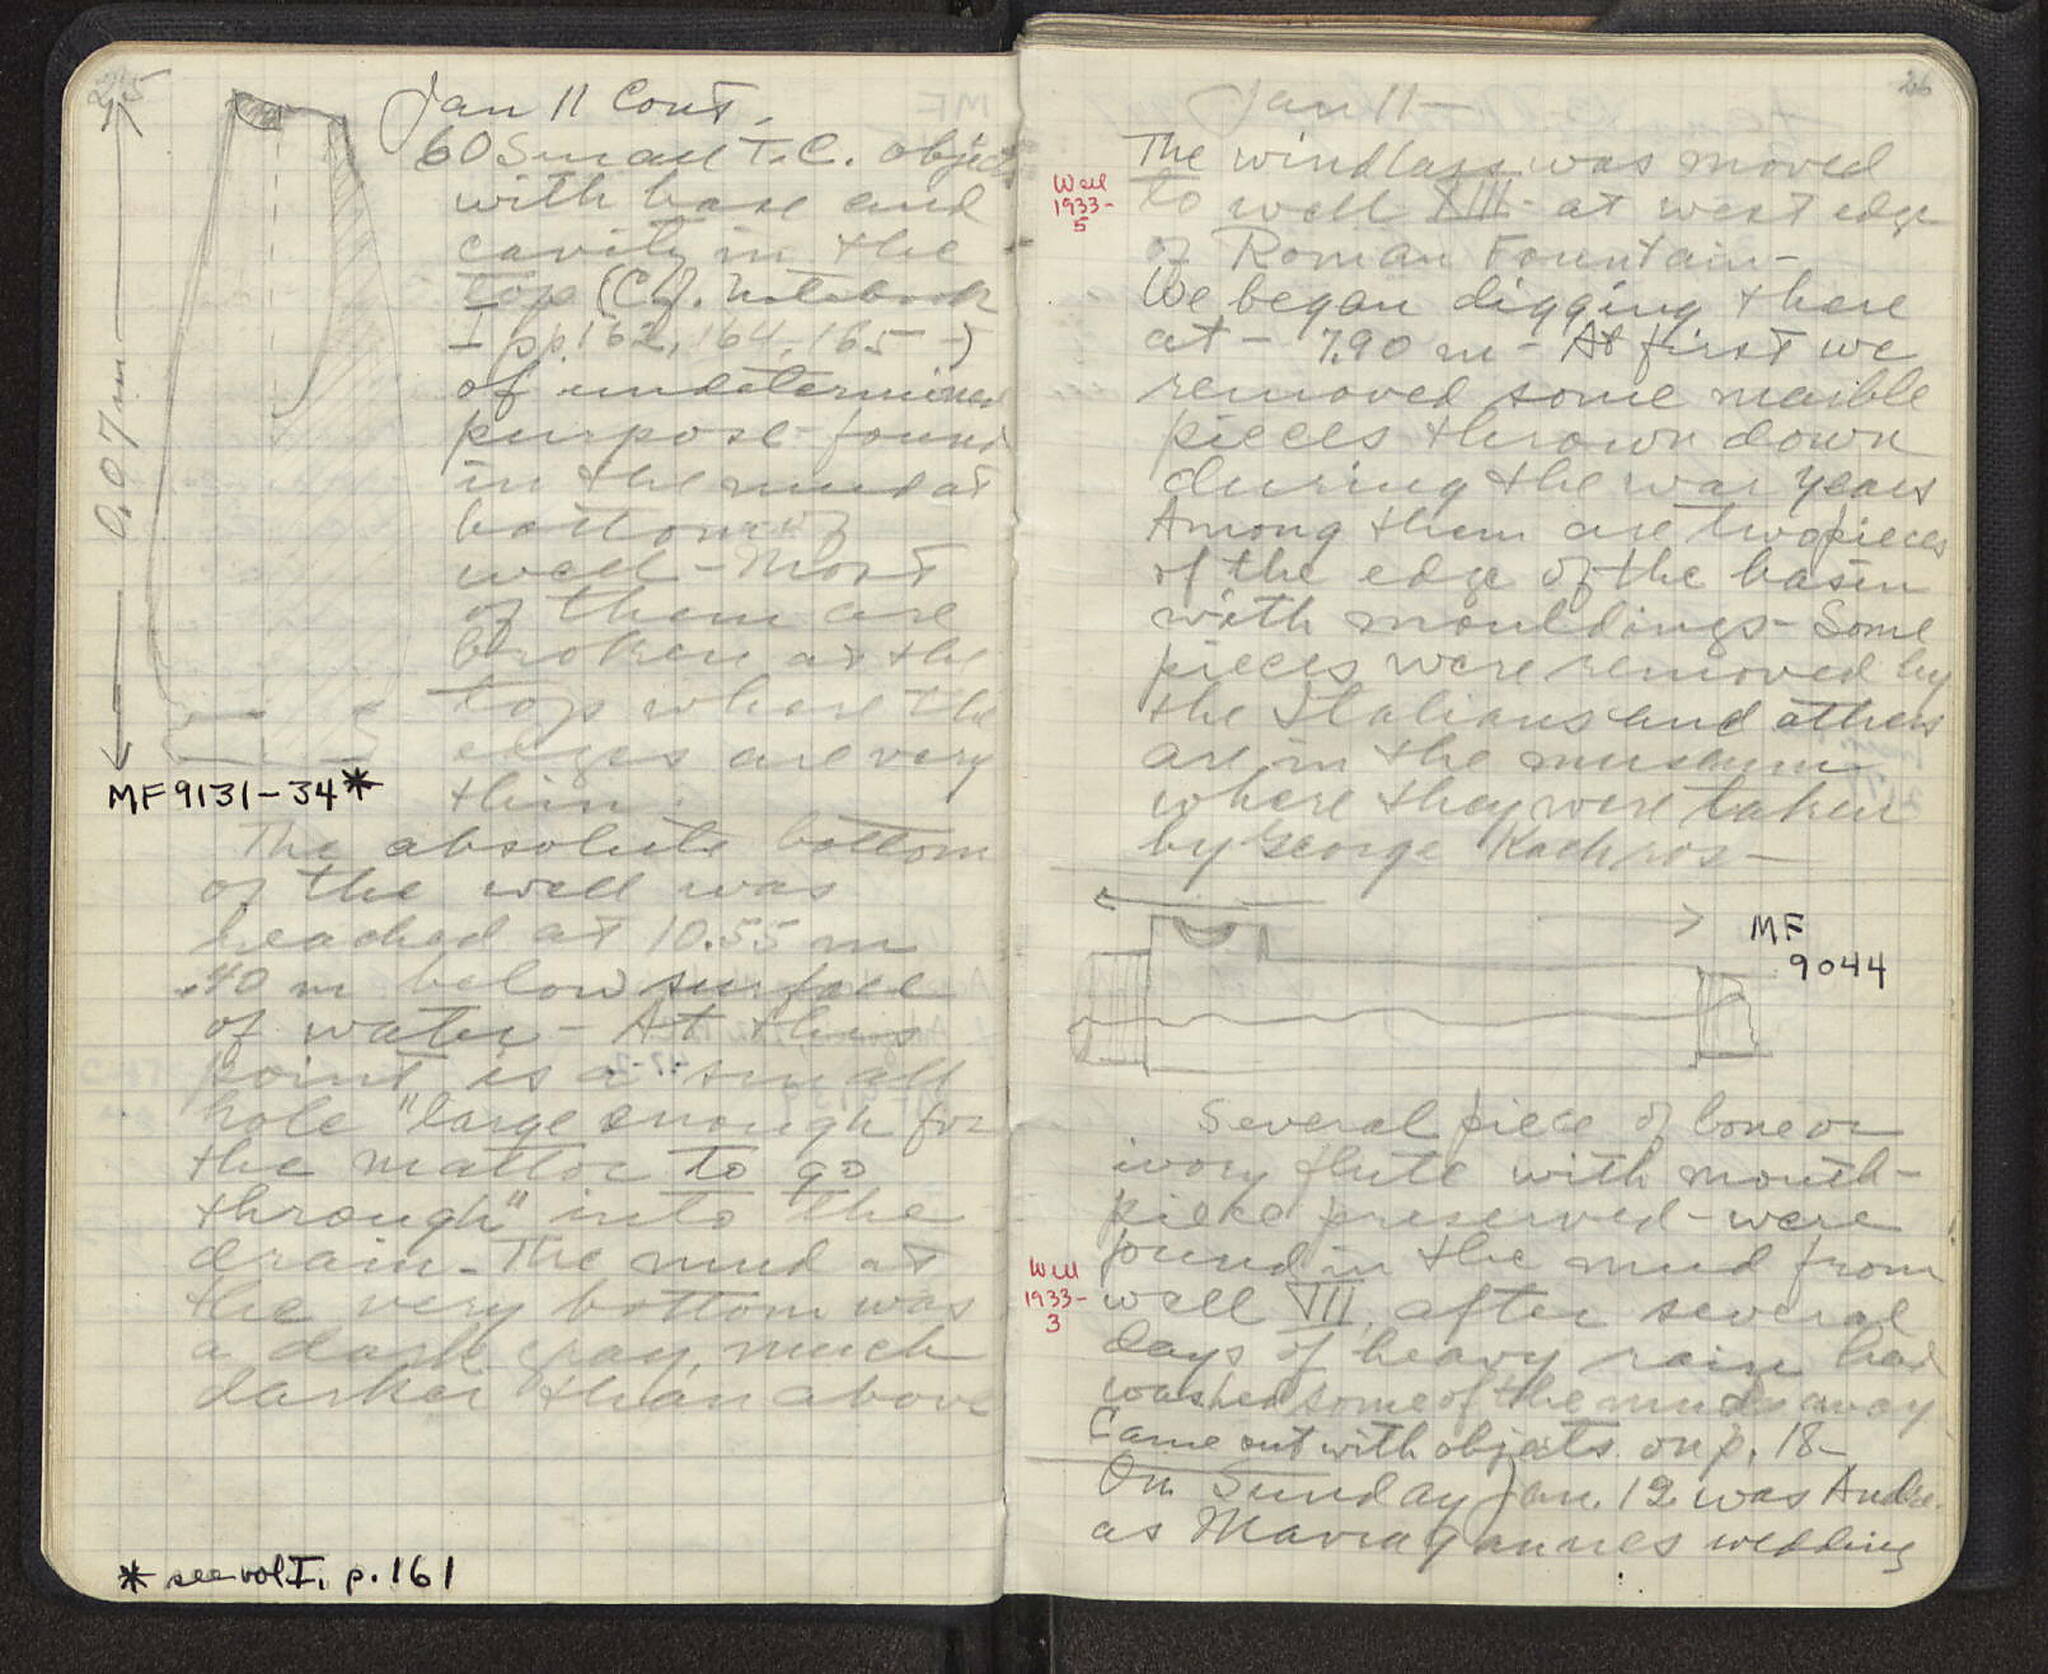 25
Jan 11 Cont.
60 Small T.C. objects
with base and
cavity in the
top (Cf. Notebook
I pp 162, 164, 165 -)
of undetermined
purpose found
in the mud at
bottom of
well - Most
of them are
broken at the
top where the
edges are very
thin.
0.07 m
MF 9131-34*
The absolute bottom
of the well was
reached at 10.55 m
.40 m below surface
of water - At this
point is a small
hole "large enough for
the mattoc to go
through" into the
drain - The mud at
the very bottom was
a dark gray, much
darker than above
* see vol I, p. 161
26
Jan 11 -
The windlass was moved
Well
1933-
5
to well XIII - at west edge
of Roman Fountain -
We began digging there
at - 7.90 m - At first we
removed some marble
pieces thrown down
during the war years
Among them are two pieces
of the edge of the basin
with mouldings - Some
pieces were removed by
the Italians and others
are in the museum
where they were taken
by George Kachros -
MF
9044
Several piece of bone or
ivory flute with mouth-
piece preserved - were
found in the mud from
Well
1933-
3
well VII, after several
days of heavy rain had
washed some of the mud away
Came out with objects on p. 18 -
On Sunday Jan. 12 was Andre-
as Mavragannes wedding